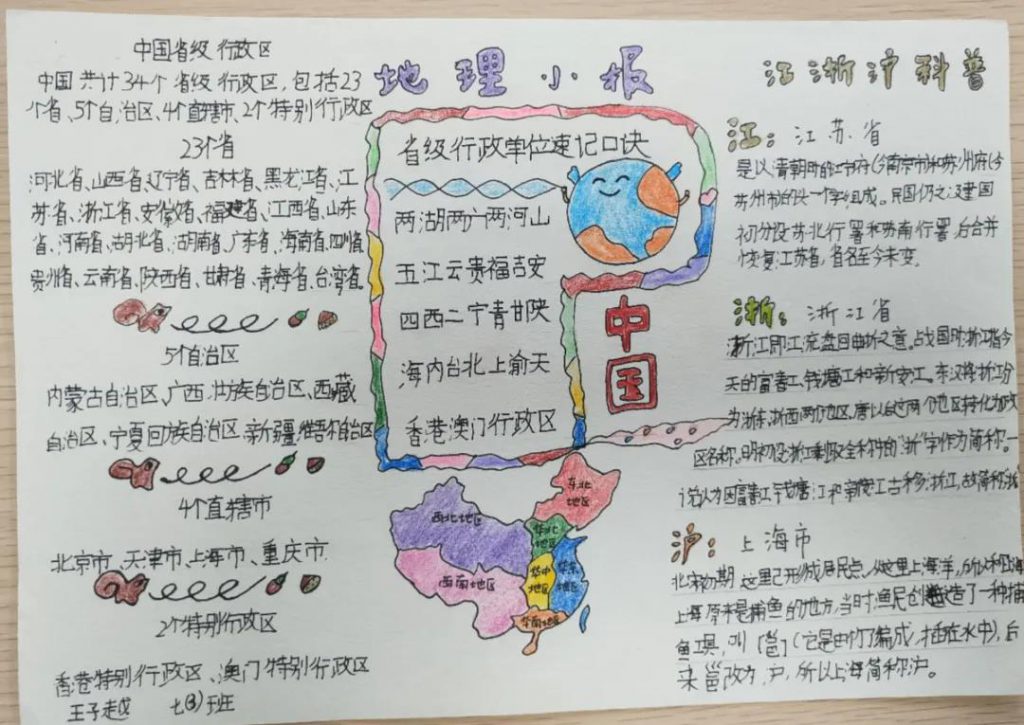 地理小报
中国省级行政区
中国共计34个省级行政区，包括23
个省、5个自治区、4个直辖市、2个特别行政区
23个省
河北省、山西省、辽宁省、吉林省、黑龙江省、江
苏省、浙江省、安徽省、福建省、江西省、山东
省、河南省、湖北省、湖南省、广东省、海南省、四川省、
贵州省、云南省、陕西省、甘肃省、青海省、台湾省。
5个自治区
内蒙古自治区、广西壮族自治区、西藏
自治区、宁夏回族自治区、新疆维吾尔自治区
4个直辖市
北京市、天津市、上海市、重庆市
2个特别行政区
香港特别行政区、澳门特别行政区
王子越 七(3)班
省级行政单位速记口诀
两湖两广两河山
五江云贵福吉安
四西二宁青甘陕
海内台北上渝天
香港澳门行政区
中国
东北地区
西北地区
华北地区
西南地区
华中地区
华东地区
华南地区
江浙沪科普
江：江苏省
是以清朝时的江宁府(今南京市)和苏州府(今
苏州市)的头一字组成。民国仍之，建国
初分设苏北行署和苏南行署，后合并
恢复江苏省，省名至今未变。
浙：浙江省
浙江即江流盘回曲折之意。战国时，浙江指今
天的富春江、钱塘江和新安江。东汉将浙江分
为浙东、浙西两个地区，唐以后这两个地区转化为政
区名称。明初设浙江，取全称的“浙”字作为简称。一
说认为因富春江、钱塘江和新安江古称浙江，故简称浙
沪：上海市
北宋初期 这里已形成居民点，从这里上海洋，所以称上海
上海原来是捕鱼的地方，当时，渔民创造了一种捕
鱼工具，叫(它是由竹子编成，插在水中)，后
来改为沪，所以上海简称沪。